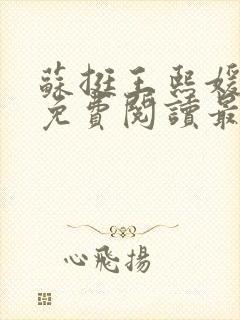 蘇挺王熙媛
免費閱讀最
心飛揚